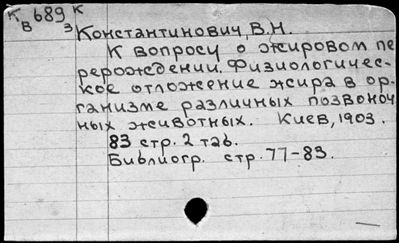 К 689 К
В 3
Константинович, В.Н.
К вопросу о жировом пе
рерождении. Физиологичес-
кое отложение жира в ор-
ганизме различных позвоноч
ных животных. Киев, 1903.
83 стр. 2 таб.
Библиогр. стр. 77-83.